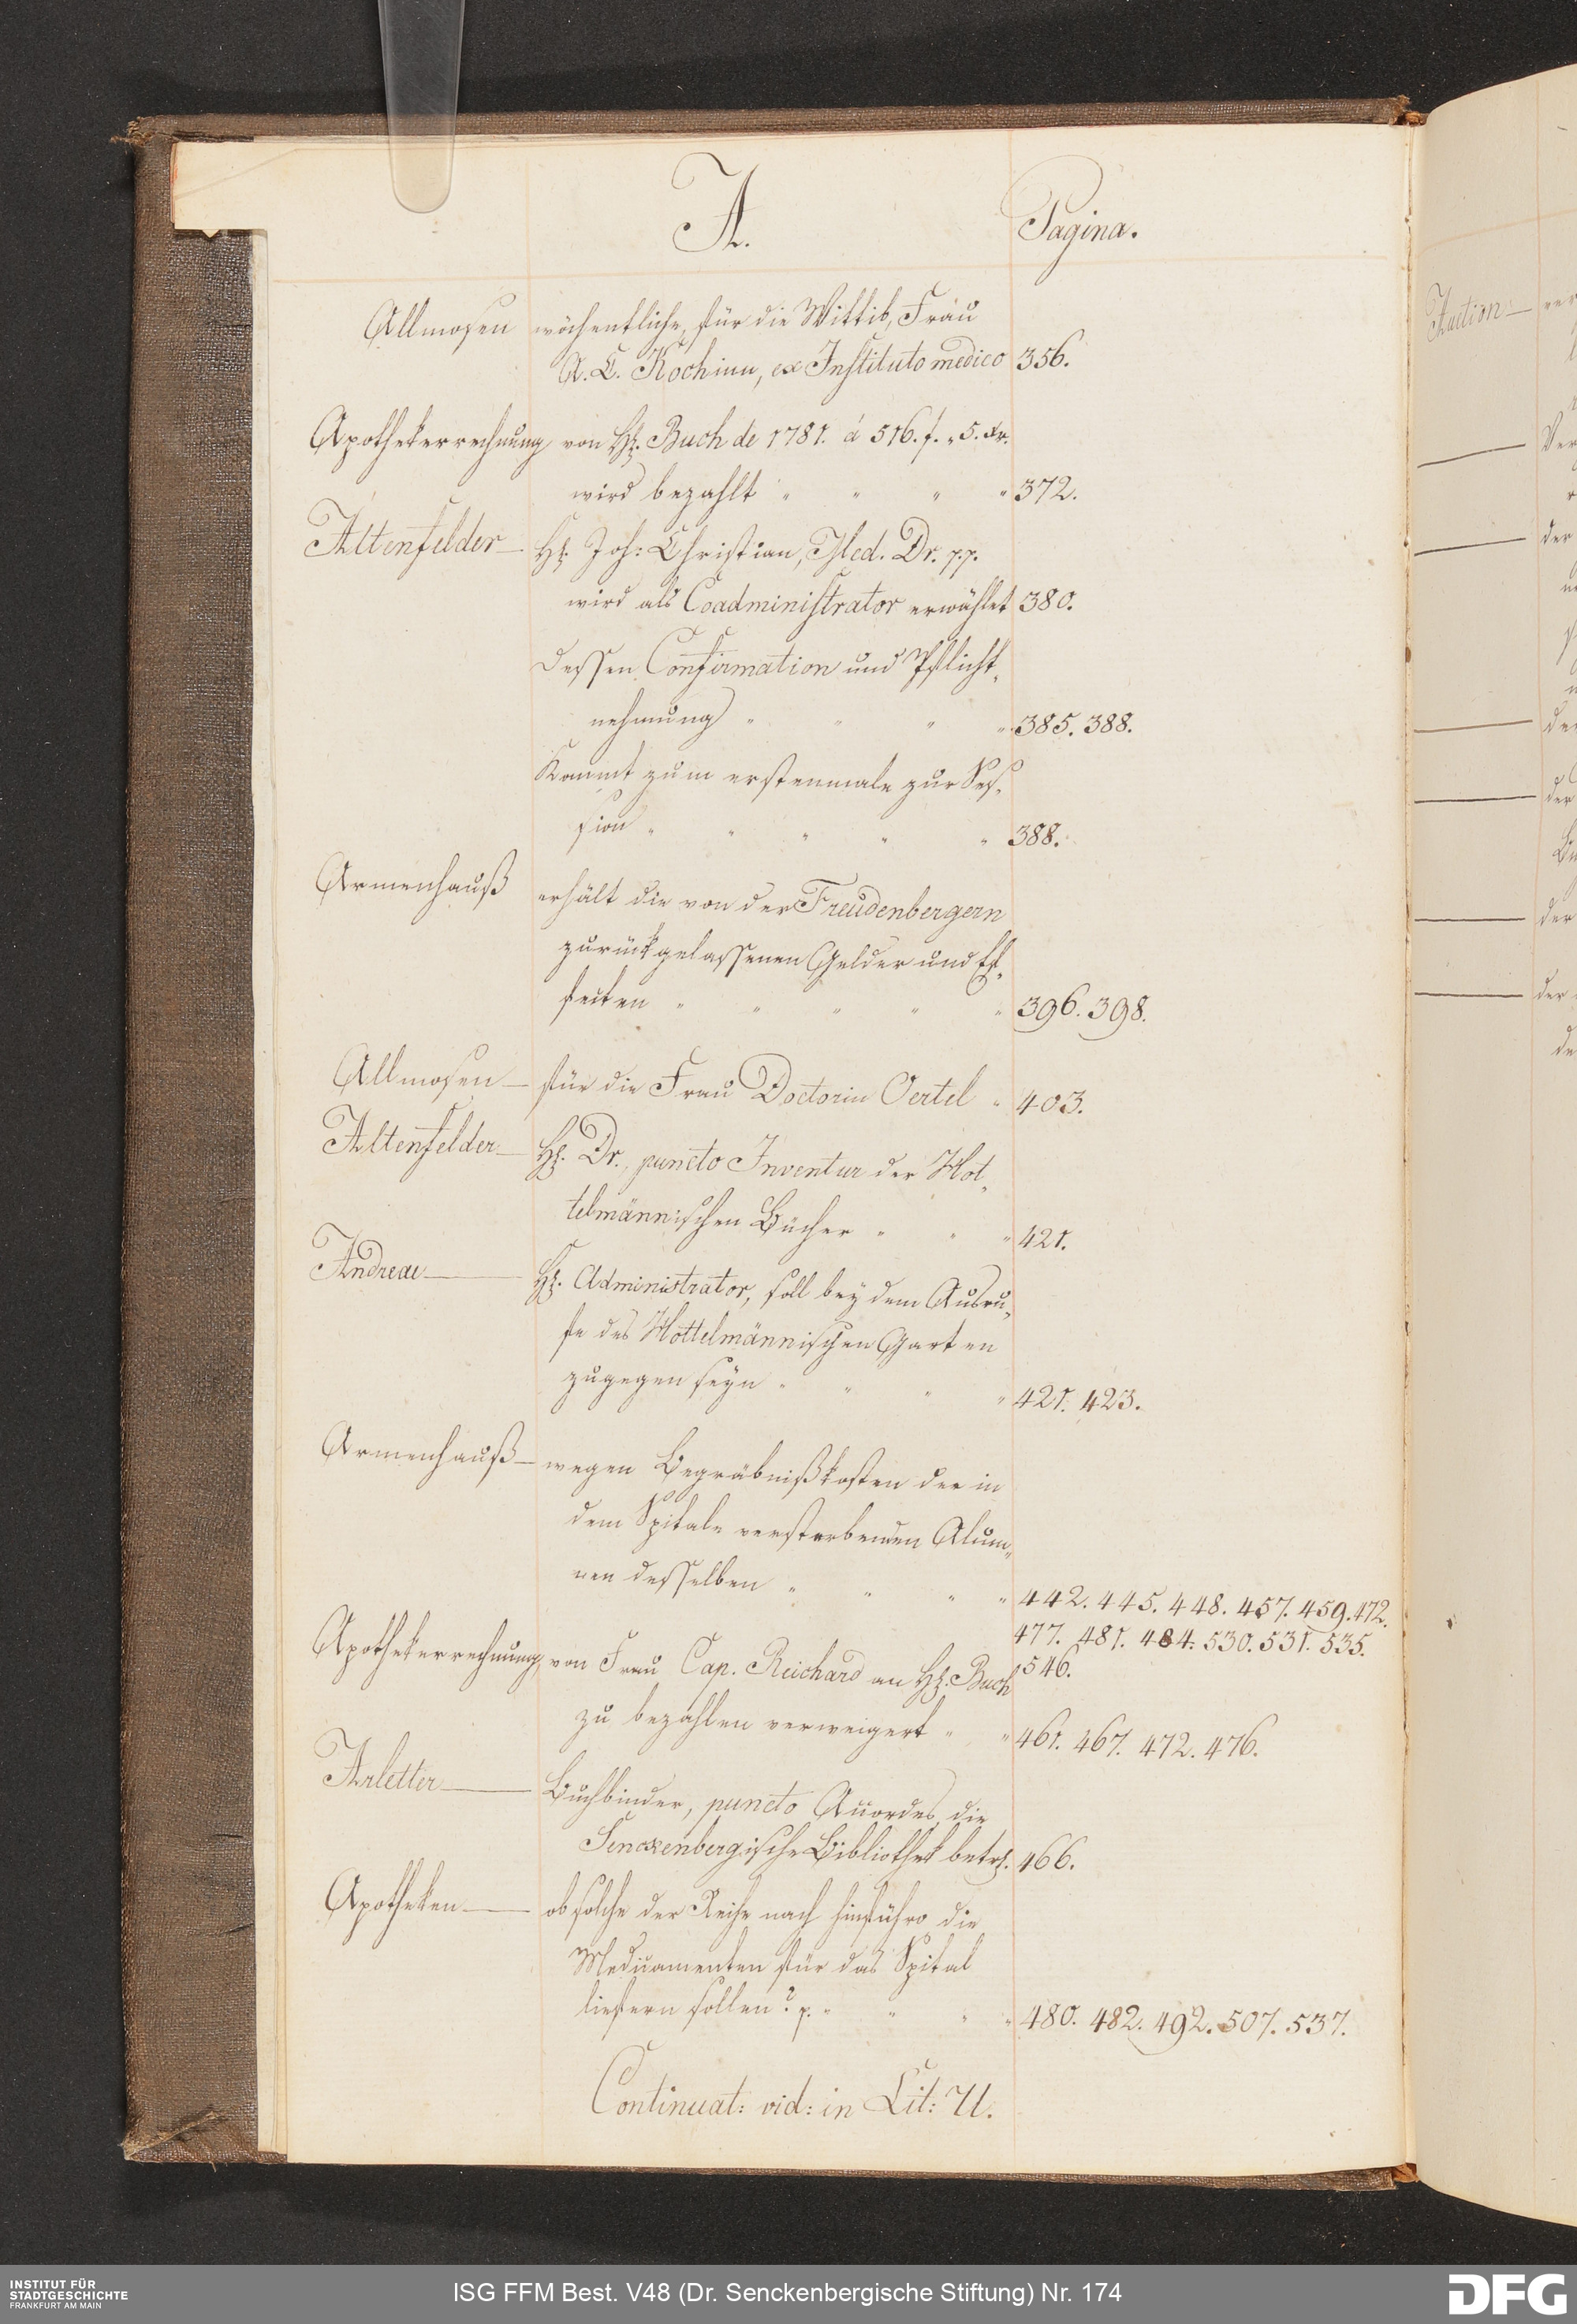 A. Pagina.
Allmosen wöchentliche, für die Wittib, Frau
A. C. Kochinn, ex Instituto medico 356.
Apothekerrechnung von H. Buch de 1781. á 516. f. „ 5. xr.
wird bezahlt „ „ „ „ 372.
Altenfelder — H. Joh: Christian, Med. Dr. p.p.
wird als Coadministrator erwählet 380.
dessen Confirmation und Pflicht„
nehmung „ „ „ „ 385. 388.
Kommt zum erstenmale zur Ses„
sion „ „ „ „ „ 388.
Armenhauß erhält die von der Freudenbergern
zurückgelassenen Gelder und Ef„
fecten „ „ „ „ „ 396. 398.
Allmosen — für die Frau Doctorin Oertel „ 403.
Altenfelder — H. Dr., puncto Inventur der Hot„
telmännischen Bücher „ „ „ 421.
Andreae — H. Administrator, soll bey dem Ausru„
fe des Hottelmännischen Garten
zugegen seyn „ „ „ „ 421. 423.
Armenhauß — wegen Begräbnißkosten der in
dem Spitale versterbenden Alum„
nen desselben „ „ „ „ 442. 445. 448. 457. 459. 472.
477. 481. 484. 530. 531. 535.
546.
Apothekerrechnung, von Frau Cap. Reichard an H. Buch
zu bezahlen verweigert „ „ 461. 467. 472. 476.
Arletter — Buchbinder, puncto Accordes, die
Senckenbergische Bibliothek betr. 466.
Apotheken — ob solche der Reihe nach hinführo die
Medicamenten für das Spital
liefern sollen? p. „ „ „ „ 480. 482. 492. 507. 537.
Continuat: vid: in Lit: U.
Auction —
INSTITUT FÜR
STADTGESCHICHTE
FRANKFURT AM MAIN
ISG FFM Best. V48 (Dr. Senckenbergische Stiftung) Nr. 174
DFG